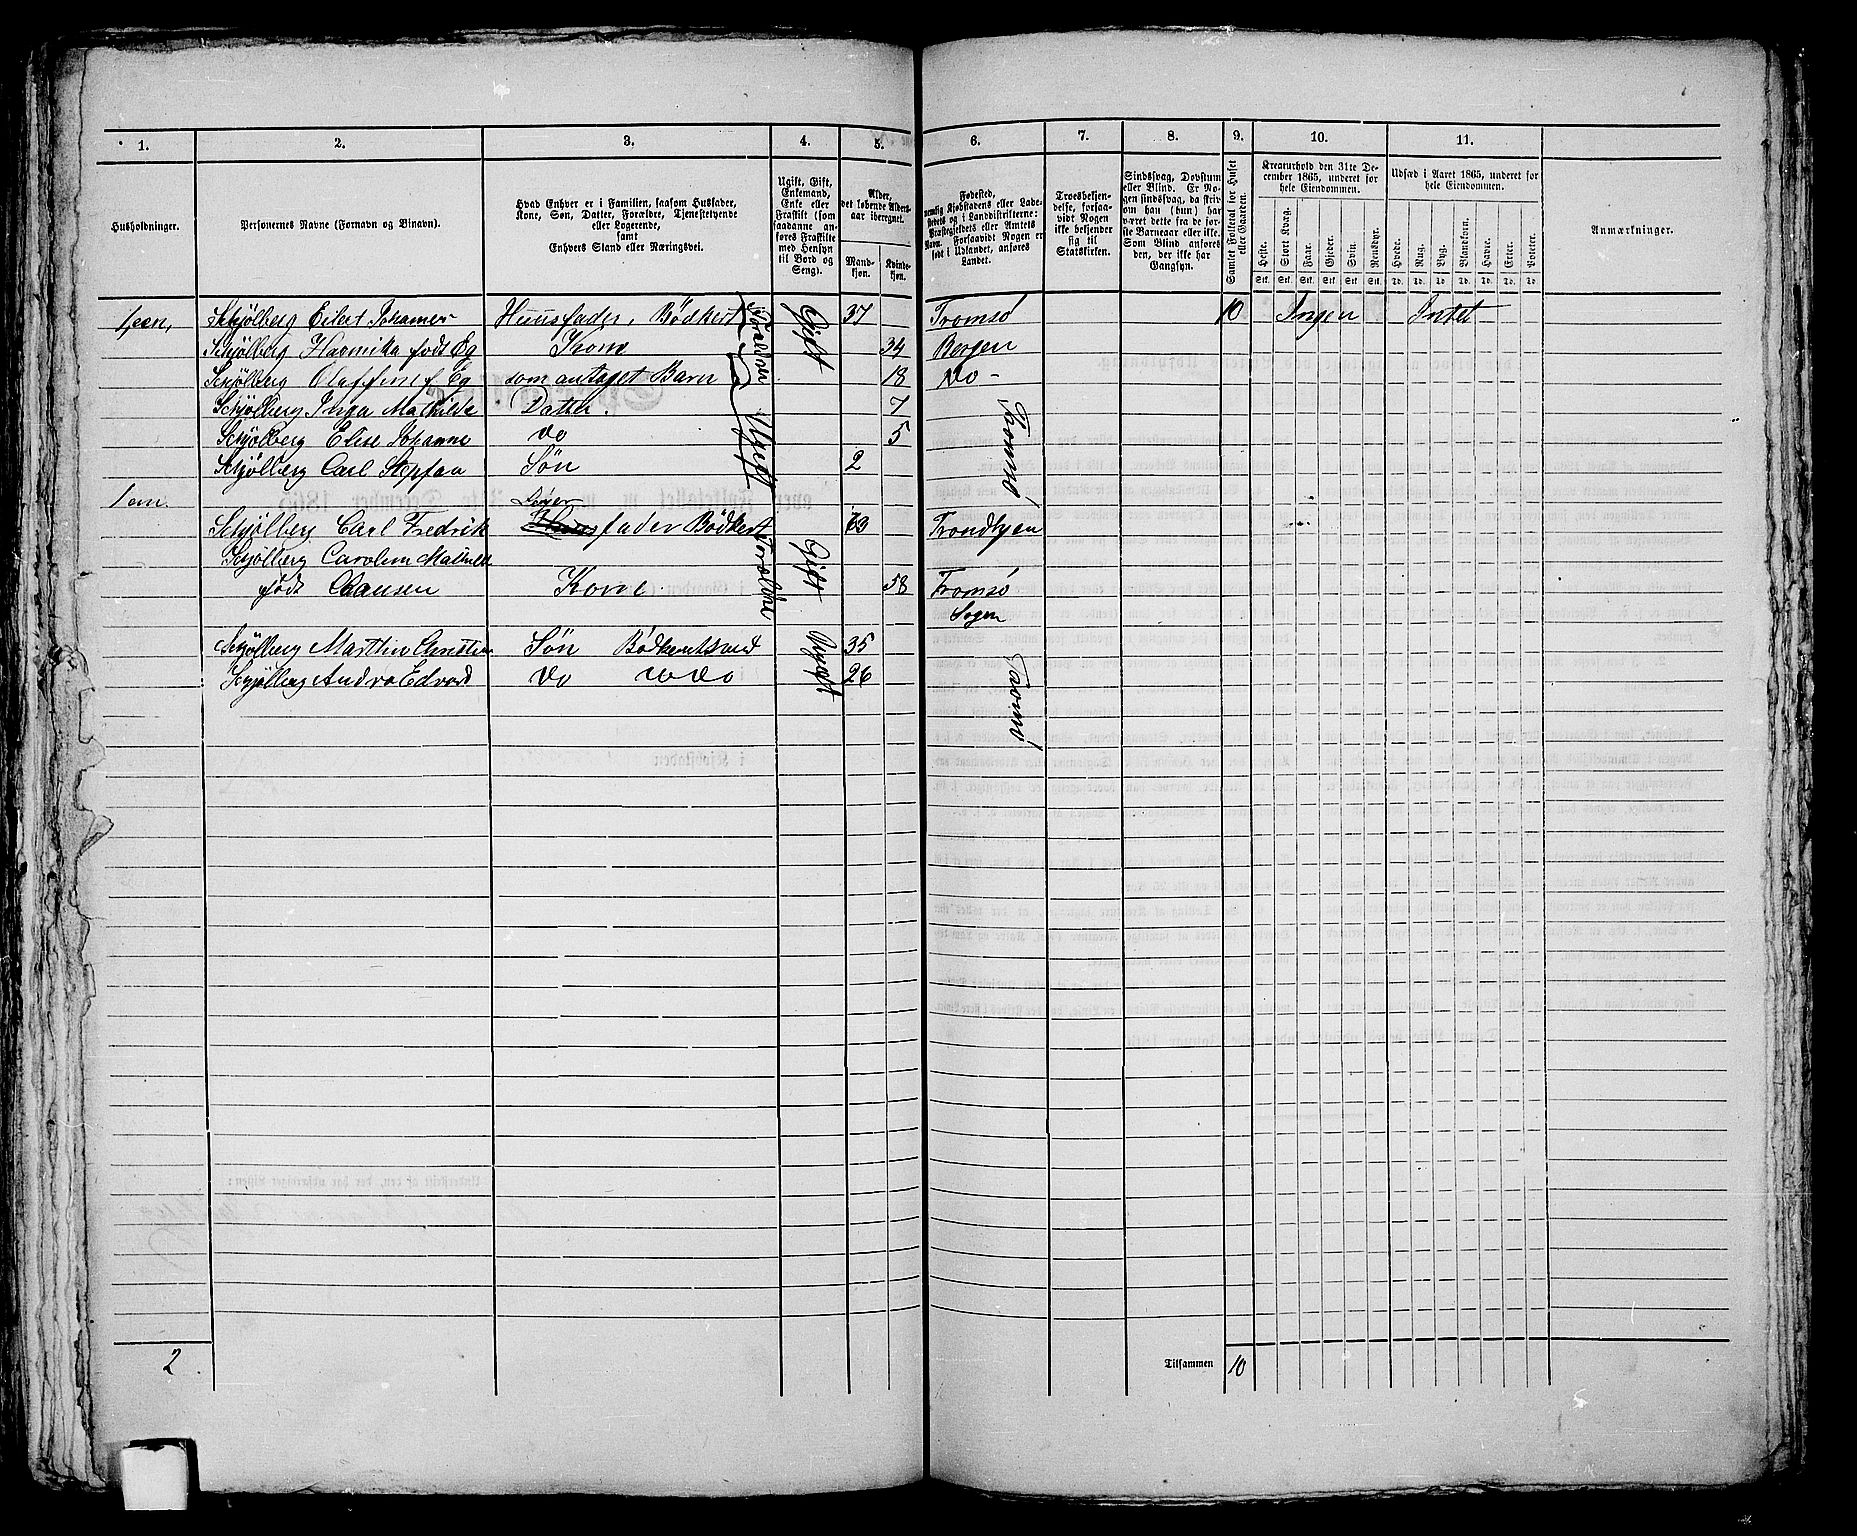 1. 2. 3. 4. 5. 6. 7. 8. 9. 10. 11.
Husholdninger.
Personernes Navne (Fornavn og Binavn).
Hvad Enhver er i Familien, saasom Husfader,
Kone, Søn, Datter, Forældre, Tjenestetyende
eller Logerende,
samt
Enhvers Stand eller Næringsvei.
Ugift, Gift,
Enkemand,
Enke eller
Fraskilt (som
saadanne an-
føres Fraskilte
med Hensyn
til Bord og
Seng).
Alder,
det løbende Alders-
aar iberegnet.
Mand-
kjøn.
Kvinde-
kjøn.
Fødested,
nemlig Kjøbstadens eller Lade-
stedets og i Landdistrikterne:
Præstegjeldets eller Amtets
Navn. Forsaavidt Nogen er
født i Udlandet, anføres
Landet.
Troesbekjen-
delse, forsaa-
vidt Nogen
ikke bekjender
sig til
Statskirken.
Sindssvag, Døvstum
eller Blind. Er No-
gen sindssvag, da skriv
om han (hun) har
været dette fra de før-
ste Barneaar eller ikke.
Som Blind anføres
den, der ikke har
Gangsyn.
Samlet Folketal for Huset
eller Gaarden.
Kreaturhold den 31te De-
cember 1865, underet for
hele Eiendommen.
Heste. Stort Kvæg. Faar. Gjeder. Svin. Rensdyr.
Stk. Stk. Stk. Stk. Stk. Stk.
Udsæd i Aaret 1865, underet for
hele Eiendommen.
Hvede. Rug. Byg. Blandkorn. Havre. Erter. Poteter.
Td. Td. Td. Td. Td. Td. Td.
Anmærkninger.
Schjølberg Eilert Johannes Huusfader, Bødkert Forældrer Gift 37 Tromsø 10 Ingen Intet
Schjølberg født Eg Kone 34 Bergen
Schjølberg f Eg som antaget Barn 18 Do -
Schjølberg Inga Mathilde Datter. Ugift 7 Tromsø
Schjølberg Elise Johanne Do 5
Schjølberg Carl Stepfan Søn 2
1 en.
Schjølberg Carl Fredrik fader Bødkert Forældre Gift 73 Trondhjen
Schjølberg Carolin
født Kone 58 Tromsø
Sogen
Schjølberg Marthin Christen Søn Bødkertsvend Ugift 35 Tromsø
Schjølberg Edvard Do Do 26
2 Tilsammen 10